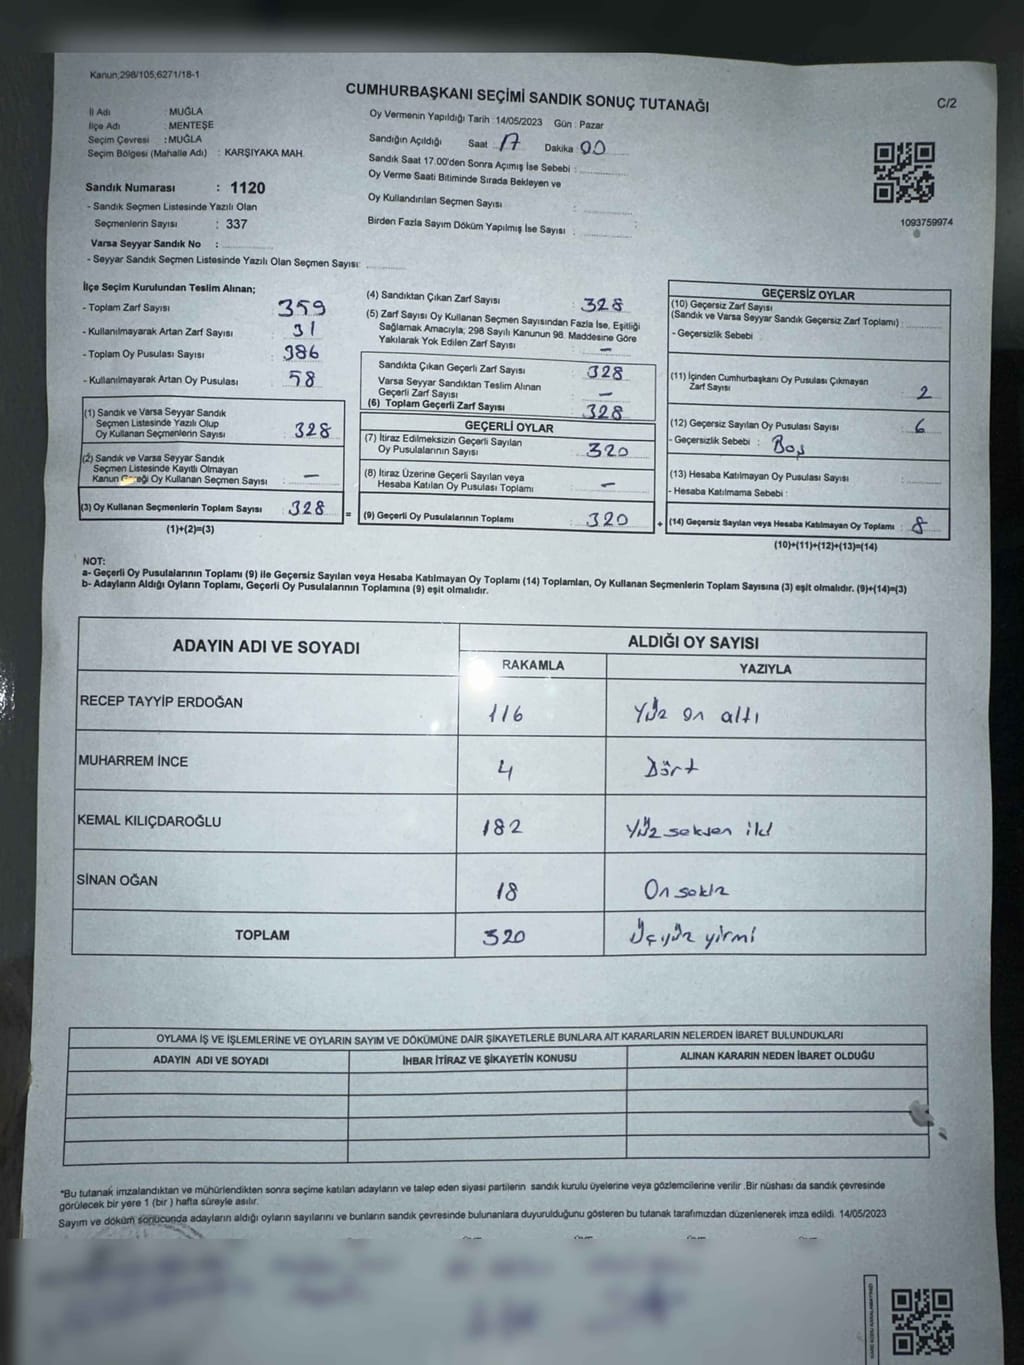 Kanun,298/105,6271/18-1
CUMHURBAŞKANI SEÇİMİ SANDIK SONUÇ TUTANAĞI
C/2
İl Adı : MUĞLA
İlçe Adı : MENTEŞE
Seçim Çevresi : MUĞLA
Seçim Bölgesi (Mahalle Adı) : KARŞIYAKA MAH.
Sandık Numarası : 1120
- Sandık Seçmen Listesinde Yazılı Olan
Seçmenlerin Sayısı : 337
Varsa Seyyar Sandık No :
- Seyyar Sandık Seçmen Listesinde Yazılı Olan Seçmen Sayısı:
Oy Vermenin Yapıldığı Tarih : 14/05/2023 Gün : Pazar
Sandığın Açıldığı Saat 17 Dakika 00
Sandık Saat 17.00'den Sonra Açımış İse Sebebi :
Oy Verme Saati Bitiminde Sırada Bekleyen ve
Oy Kullandırılan Seçmen Sayısı :
Birden Fazla Sayım Döküm Yapılmış İse Sayısı :
1093759974
İlçe Seçim Kurulundan Teslim Alınan;
- Toplam Zarf Sayısı 359
- Kullanılmayarak Artan Zarf Sayısı 31
- Toplam Oy Pusulası Sayısı 386
- Kullanılmayarak Artan Oy Pusulası 58
(1) Sandık ve Varsa Seyyar Sandık
Seçmen Listesinde Yazılı Olup
Oy Kullanan Seçmenlerin Sayısı : 328
(2) Sandık ve Varsa Seyyar Sandık
Seçmen Listesinde Kayıtlı Olmayan
Kanun Gereği Oy Kullanan Seçmen Sayısı : –
(3) Oy Kullanan Seçmenlerin Toplam Sayısı : 328
(1)+(2)=(3)
(4) Sandıktan Çıkan Zarf Sayısı : 328
(5) Zarf Sayısı Oy Kullanan Seçmen Sayısından Fazla İse, Eşitliği
Sağlamak Amacıyla; 298 Sayılı Kanunun 98. Maddesine Göre
Yakılarak Yok Edilen Zarf Sayısı : –
Sandıkta Çıkan Geçerli Zarf Sayısı : 328
Varsa Seyyar Sandıktan Teslim Alınan
Geçerli Zarf Sayısı : –
(6) Toplam Geçerli Zarf Sayısı : 328
GEÇERLİ OYLAR
(7) İtiraz Edilmeksizin Geçerli Sayılan
Oy Pusulalarının Sayısı : 320
(8) İtiraz Üzerine Geçerli Sayılan veya
Hesaba Katılan Oy Pusulası Toplamı : –
= (9) Geçerli Oy Pusulalarının Toplamı : 320
GEÇERSİZ OYLAR
(10) Geçersiz Zarf Sayısı
(Sandık ve Varsa Seyyar Sandık Geçersiz Zarf Toplamı) :
- Geçersizlik Sebebi :
(11) İçinden Cumhurbaşkanı Oy Pusulası Çıkmayan
Zarf Sayısı : 2
(12) Geçersiz Sayılan Oy Pusulası Sayısı : 6
- Geçersizlik Sebebi : Boş
(13) Hesaba Katılmayan Oy Pusulası Sayısı :
- Hesaba Katılmama Sebebi :
+ (14) Geçersiz Sayılan veya Hesaba Katılmayan Oy Toplamı : 8
(10)+(11)+(12)+(13)=(14)
NOT:
a- Geçerli Oy Pusulalarının Toplamı (9) ile Geçersiz Sayılan veya Hesaba Katılmayan Oy Toplamı (14) Toplamları, Oy Kullanan Seçmenlerin Toplam Sayısına (3) eşit olmalıdır. (9)+(14)=(3)
b- Adayların Aldığı Oyların Toplamı, Geçerli Oy Pusulalarının Toplamına (9) eşit olmalıdır.
ADAYIN ADI VE SOYADI ALDIĞI OY SAYISI
RAKAMLA YAZIYLA
RECEP TAYYİP ERDOĞAN 116 Yüz on altı
MUHARREM İNCE 4 Dört
KEMAL KILIÇDAROĞLU 182 Yüz seksen iki
SİNAN OĞAN 18 On sekiz
TOPLAM 320 Üçyüz yirmi
OYLAMA İŞ VE İŞLEMLERİNE VE OYLARIN SAYIM VE DÖKÜMÜNE DAİR ŞİKAYETLERLE BUNLARA AİT KARARLARIN NELERDEN İBARET BULUNDUKLARI
ADAYIN ADI VE SOYADI İHBAR İTİRAZ VE ŞİKAYETİN KONUSU ALINAN KARARIN NEDEN İBARET OLDUĞU
*Bu tutanak imzalandıktan ve mühürlendikten sonra seçime katılan adayların ve talep eden siyasi partilerin sandık kurulu üyelerine veya gözlemcilerine verilir .Bir nüshası da sandık çevresinde
görülecek bir yere 1 (bir ) hafta süreyle asılır.
Sayım ve döküm sonucunda adayların aldığı oyların sayılarını ve bunların sandık çevresinde bulunanlara duyurulduğunu gösteren bu tutanak tarafımızdan düzenlenerek imza edildi. 14/05/2023